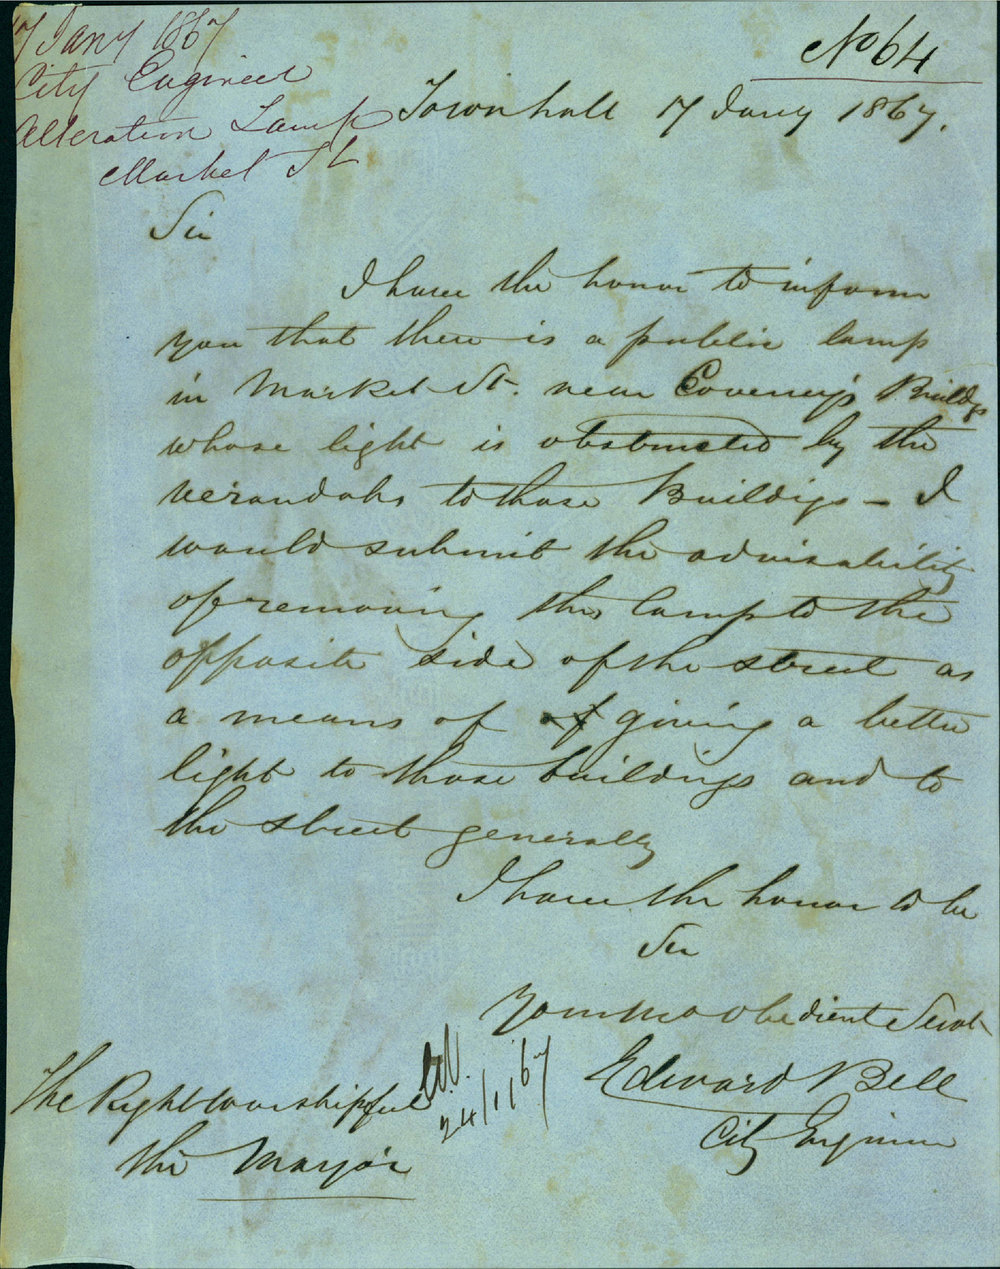 17 Jany 1867
City Engineer
Alteration Lamp
Market St
No 64
Townhall 17 Jany 1867.
Sir
I have the honor to inform
you that there is a public lamp
in Market St. near Coveney's Buildgs
whose light is obstructed by the
verandahs to those Buildigs - I
would submit the advisability
of removing this lamp to the
opposite side of the street as
a means of of giving a better
light to those buildings and to
the street generally
I have the honor to be
Sir
Your mo obedient Servt
Edward Bell
City Engineer
The Right Worshipful
the Mayor
24/1/67